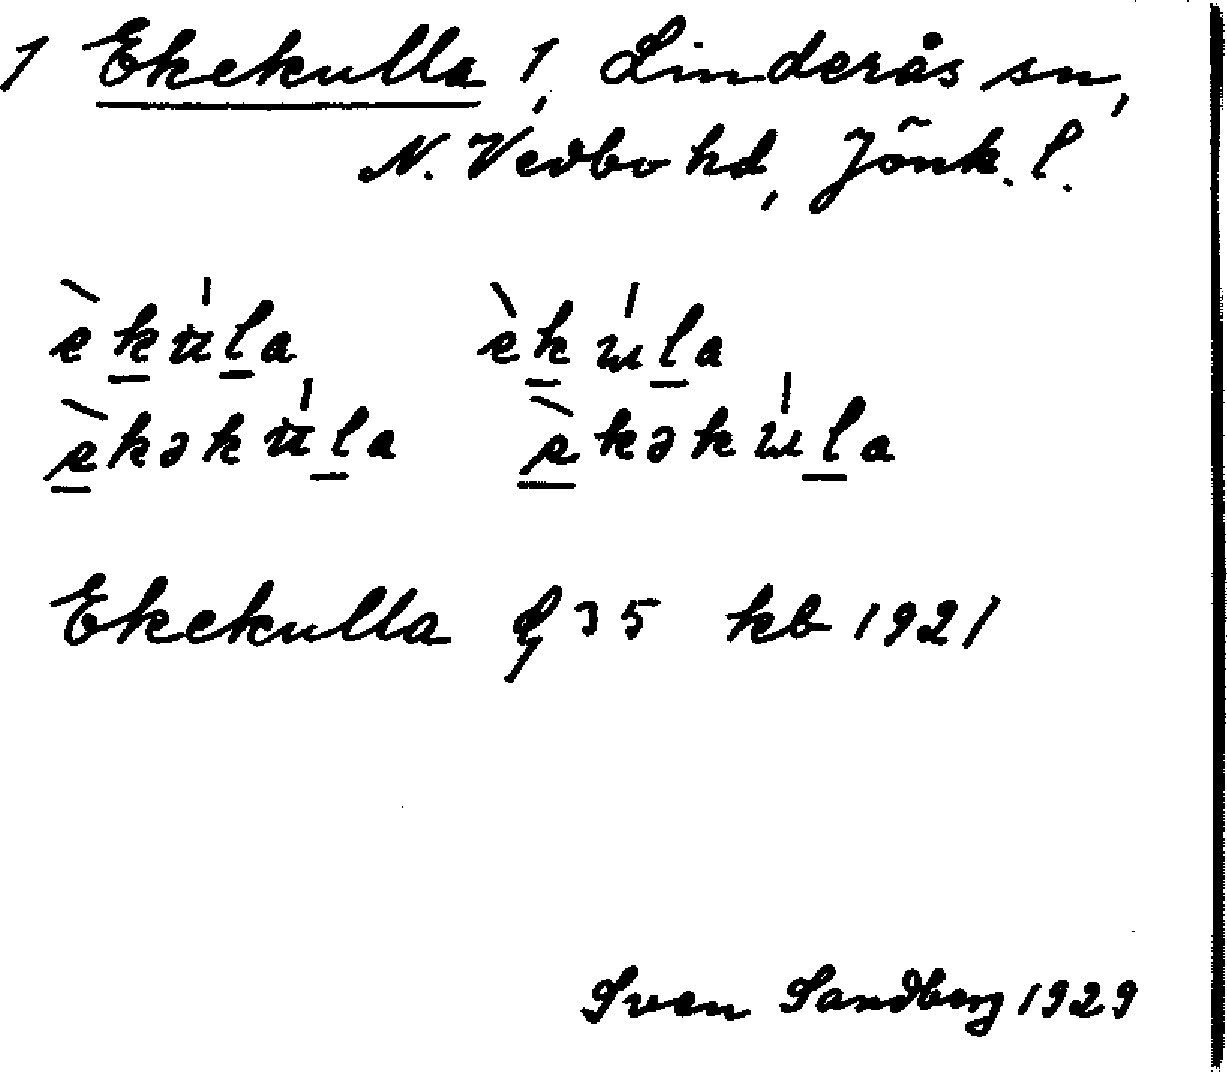 1 Ekekulla 1, Linderås sn,
N. Vedbo hd, Jönk. l.
èkúla èkúla
èkəkúla èkəkúla
Ekekulla 35 kb 1921
Sven Sandberg 1929